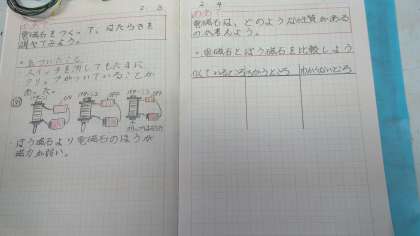 2.3
めあて
電磁石をつくって、はたらきを
調べてみよう。
・気づいたこと
・スイッチを消してもたまに
クリップがついていることが
あった。
ON
OFF
OFF
・ぼう磁石より電磁石のほうが
磁力が弱い。
2.4
めあて
電磁石は、どのような性質がある
のか考えよう。
・電磁石とぼう磁石を比較しよう
似ているところ ちがうところ わからないところ